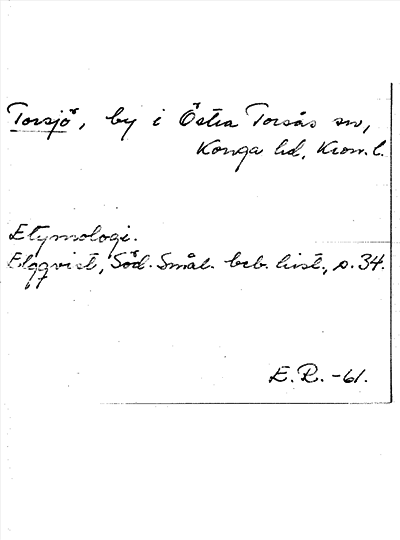 Torsjö, by i Östra Torsås sn,
Konga hd, Kron. l.
Etymologi.
Elqqvist, Söd. Smål. beb. hist., s. 34.
E. R. -61.